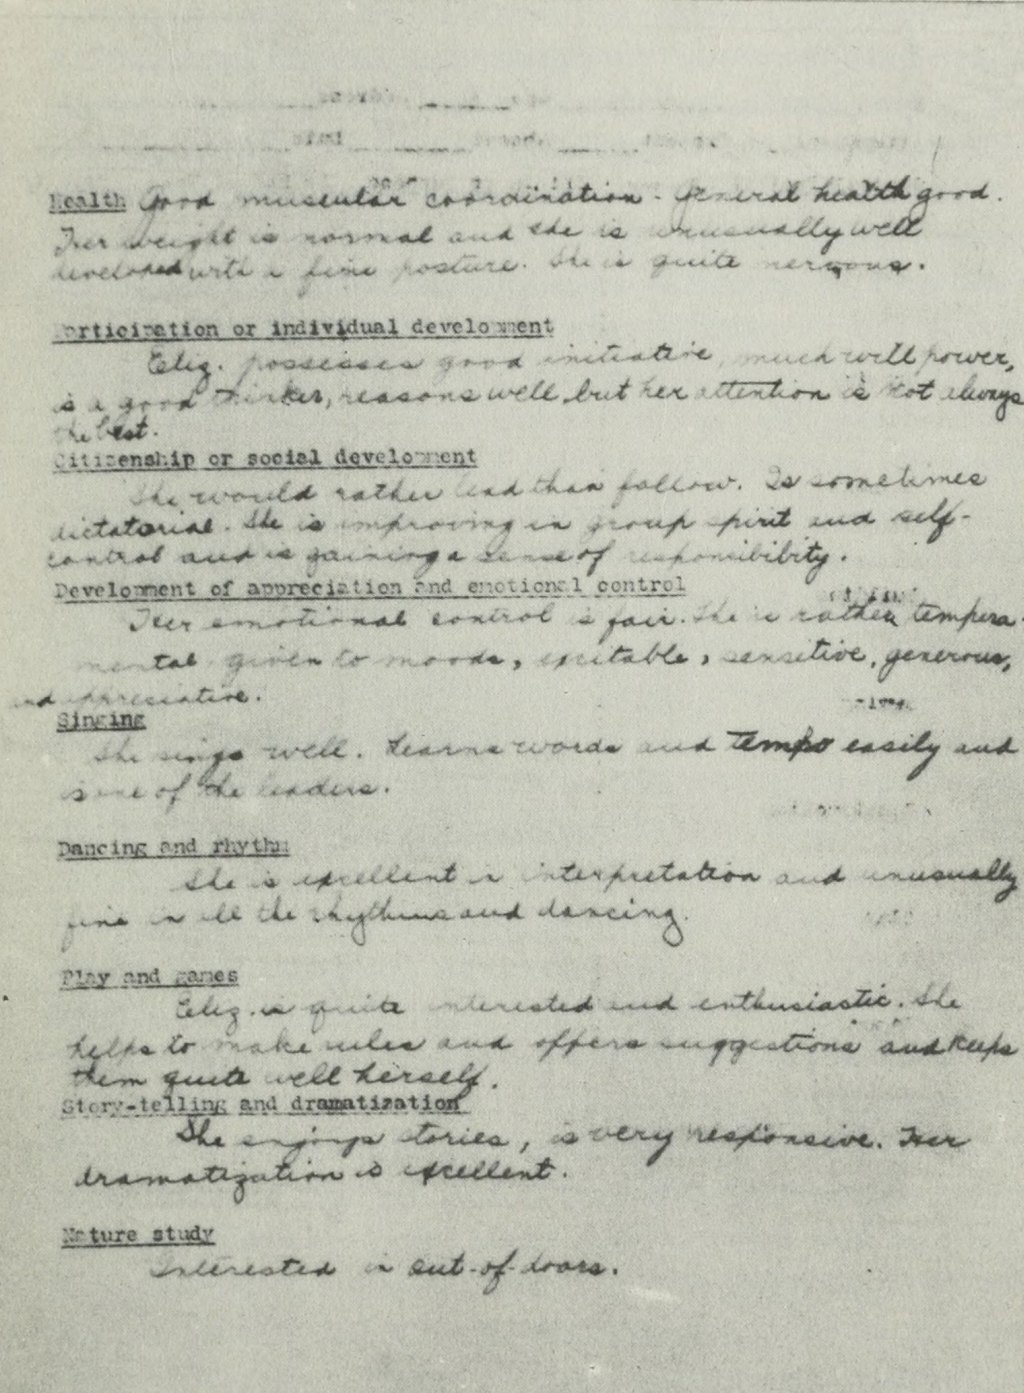 Health Good muscular coordination. General health good.
Her weight is normal and she is unusually well
developed with a fine posture. She is quite nervous.
Participation or individual development
Eliz. possesses good initiative, much will power,
is a good thinker, reasons well, but her attention is not always
the best.
Citizenship or social development
She would rather lead than follow. Is sometimes
dictatorial. She is improving in group spirit and self-
control and is gaining a sense of responsibility.
Development of appreciation and emotional control
Her emotional control is fair. She is rather tempera-
mental, given to moods, excitable, sensitive, generous,
and appreciative.
Singing
She sings well. Learns words and tempo easily and
is one of the leaders.
Dancing and rhythm
She is excellent in interpretation and unusually
fine in all the rhythms and dancing.
Play and games
Eliz. is quite interested and enthusiastic. She
helps to make rules and offers suggestions and keeps
them quite well herself.
Story-telling and dramatization
She enjoys stories, is very responsive. Her
dramatization is excellent.
Nature study
Interested in out-of-doors.